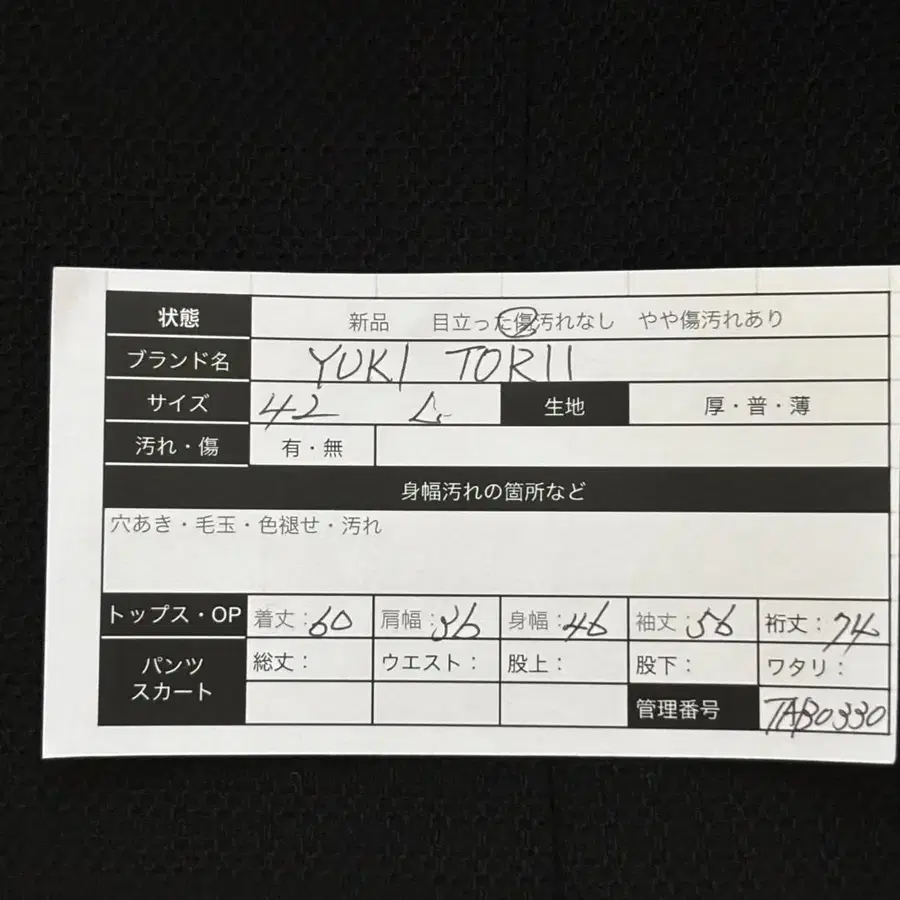 状態 新品 目立った傷汚れなし やや傷汚れあり
ブランド名 YUKI TORII
サイズ 42 L 生地 厚・普・薄
汚れ・傷 有・無
身幅汚れの箇所など
穴あき・毛玉・色褪せ・汚れ
トップス・OP 着丈:60 肩幅:36 身幅:46 袖丈:56 裄丈:74
パンツ 総丈: ウエスト: 股上: 股下: ワタリ:
スカート
管理番号 TAB0330